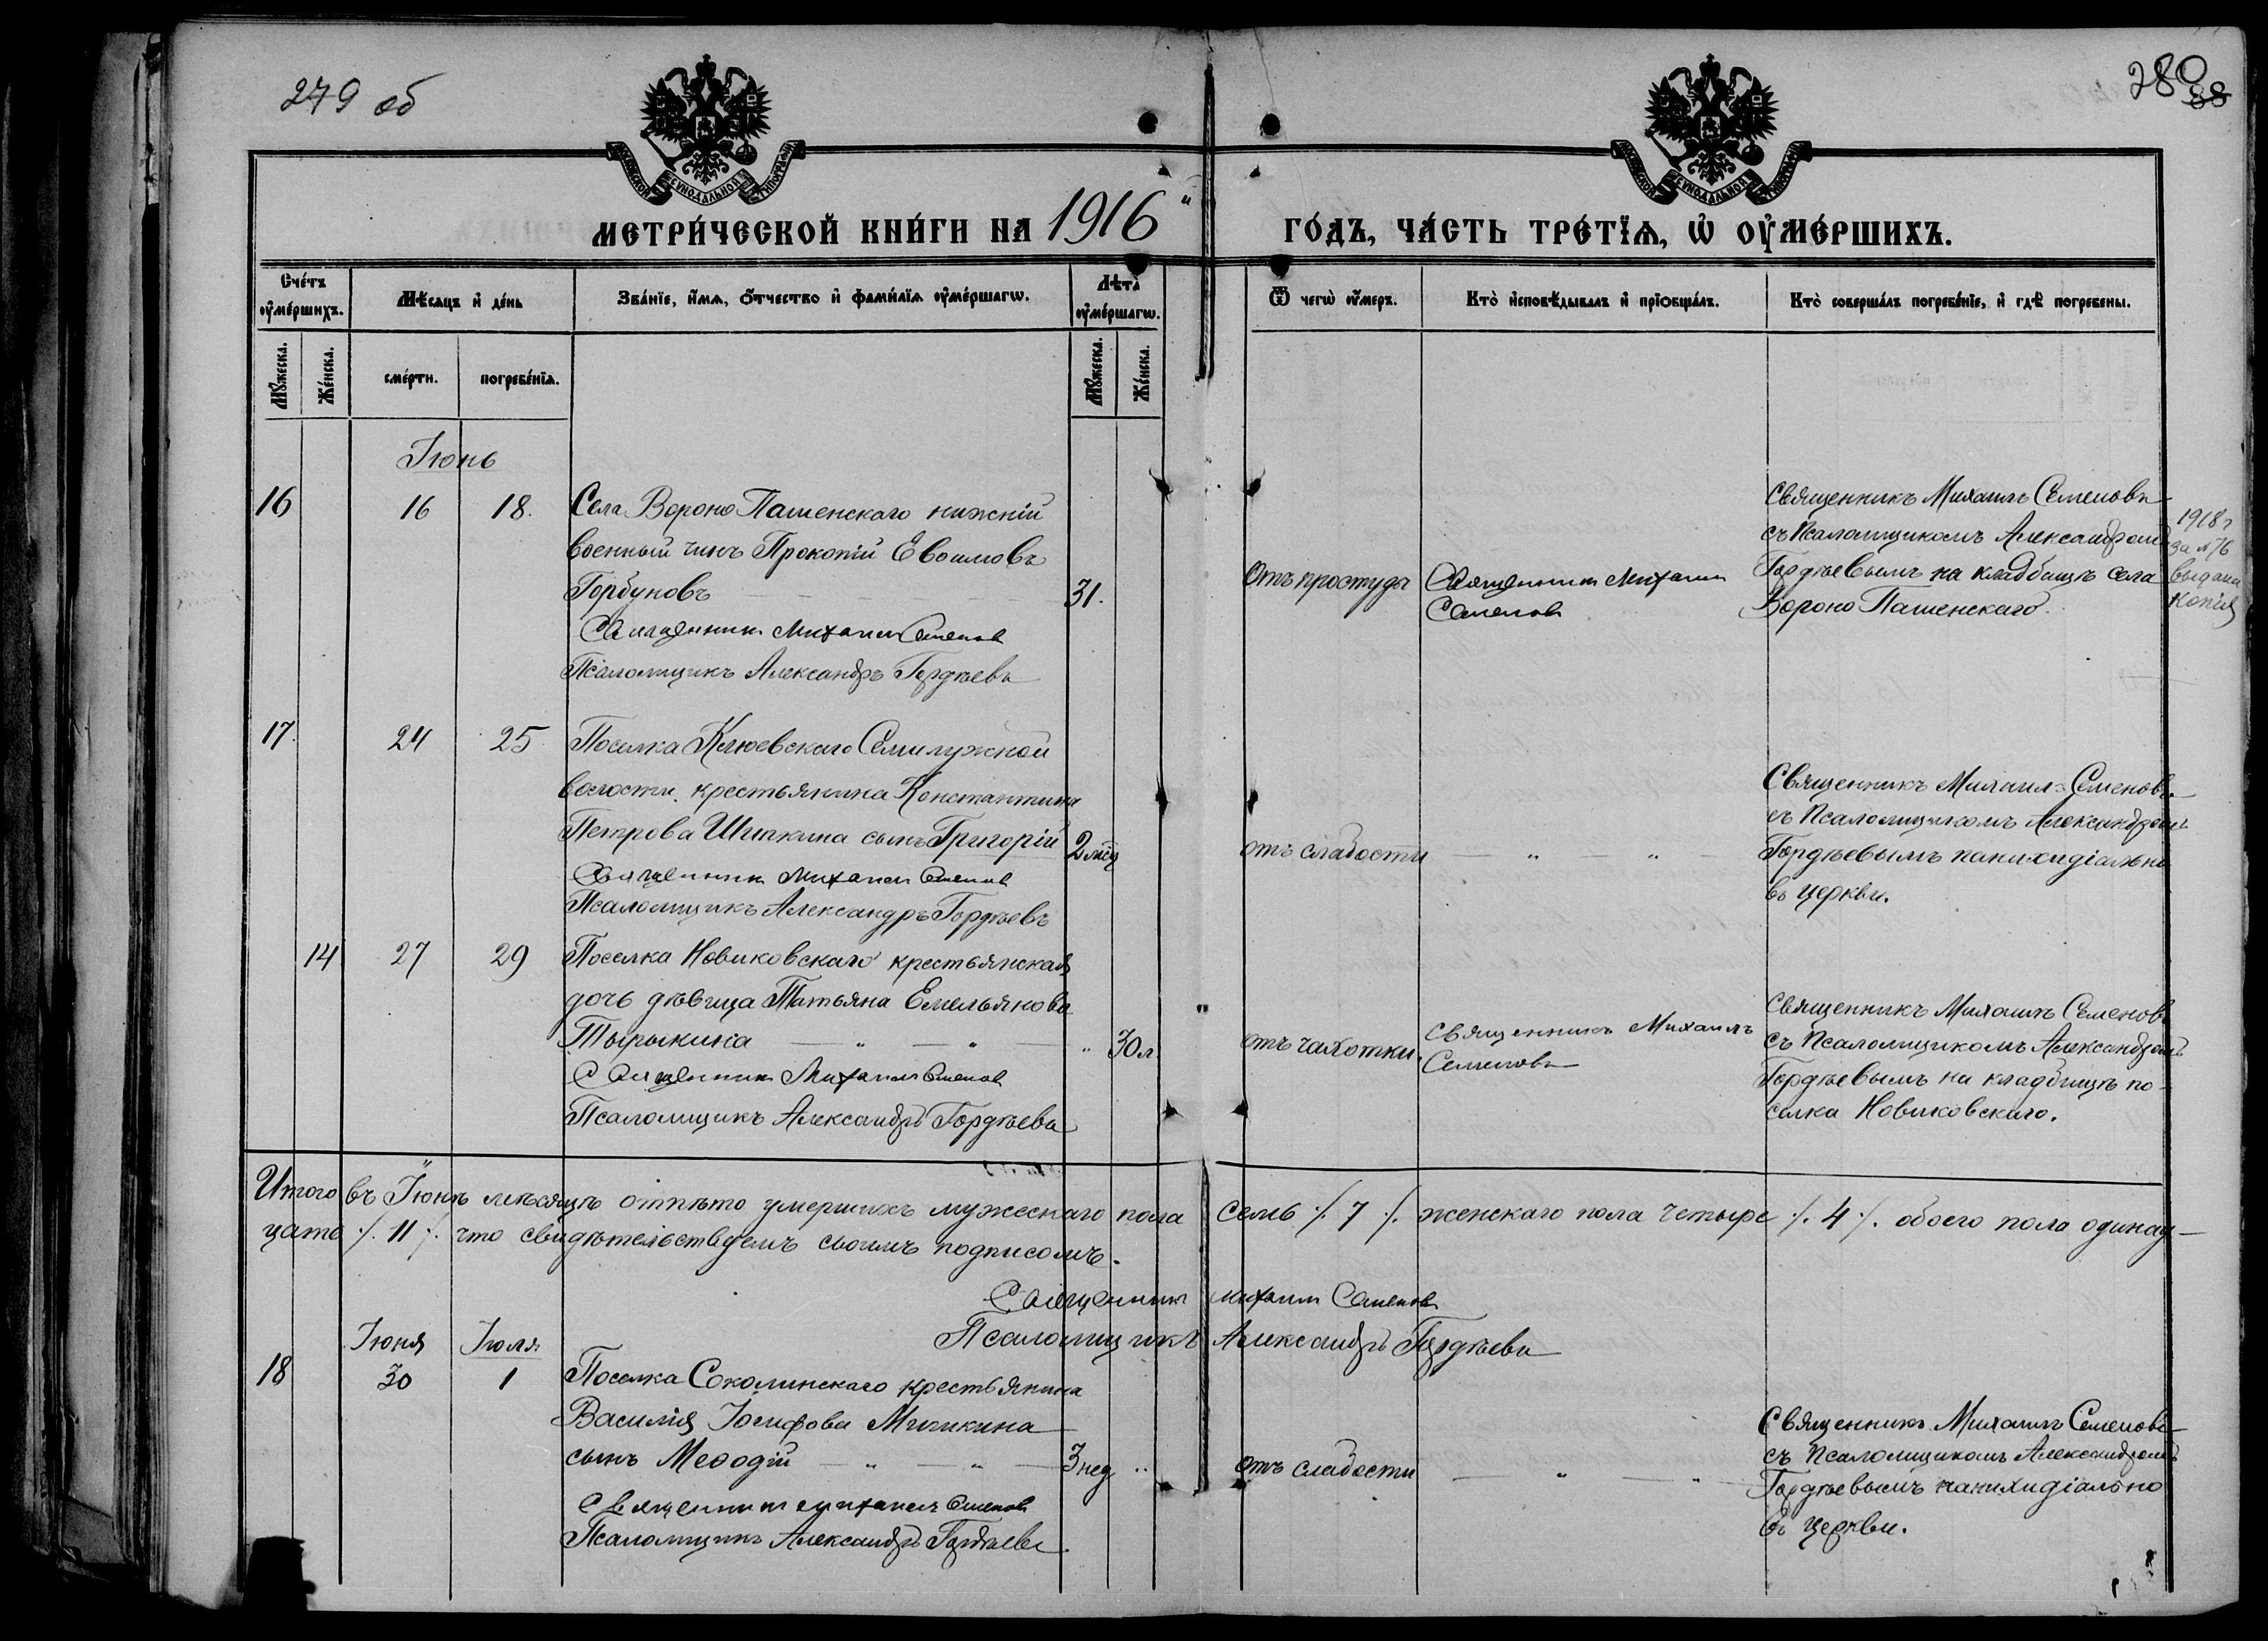 279 об
280
88
МОСКОВСКОЙ СѴНОДАЛЬНОЙ ТИПОГРАФІИ
МОСКОВСКОЙ СѴНОДАЛЬНОЙ ТИПОГРАФІИ
МЕТРИ́ЧЕСКОЙ КНИ́ГИ НА 1916 ГО́ДЪ, ЧА́СТЬ ТРЕ́ТЇѦ, Ѡ҆ ОУ҆МЕ́РШИХЪ.
Счéтъ оу҆мéршихъ.
Мѣ́сяцъ и҆ дéнь
Звáнїе, и҆́мѧ, ѻ҆́тчество и҆ фамѝлїѧ оу҆мéршагѡ.
Лѣ́та оу҆мéршагѡ.
Ѿ чегѡ̀ оу҆́меръ.
Кто̀ и҆сповѣ́дывалъ и҆ прїѡбщáлъ.
Кто̀ совершáлъ погребéнїе, и҆ гдѣ̀ погребены.
Мꙋ́жеска.
Жéнска.
смéрти.
погребéнїѧ.
Мꙋ́жеска.
Жéнска.
Іюнь
16 16 18.
Села Вороно Пашенскаго нижній
военный чинъ Прокопій Евѳимовъ
Горбуновъ
31.
Священникъ Михаилъ Семеновъ
Псаломщикъ Александръ Гордѣевъ
Отъ простуды
Священникъ Михаилъ
Семеновъ
Священникъ Михаилъ Семеновъ
съ Псаломщикомъ Александромъ
Гордѣевымъ на кладбищѣ села
Вороно Пашенскаго.
1918 г
за № 76
выдана
копія
17. 24 25
Поселка Клюевскаго Семилужной
волости крестьянина Константина
Петрова Шипкина сынъ Григорій
2 мѣс
Священникъ Михаилъ Семеновъ
Псаломщикъ Александръ Гордѣевъ
отъ слабости
— „ — „ —
Священникъ Михаилъ Семеновъ
съ Псаломщикомъ Александромъ
Гордѣевымъ панихидіально
въ церкви.
14 27 29
Поселка Новиковскаго крестьянская
дочь дѣвица Татьяна Емельянова
Тырыкина — „ — „ —
„ 30 л.
Священникъ Михаилъ Семеновъ
Псаломщикъ Александръ Гордѣевъ
отъ чахотки.
Священникъ Михаилъ
Семеновъ
Священникъ Михаилъ Семеновъ
съ Псаломщикомъ Александромъ
Гордѣевымъ на кладбищѣ по-
селка Новиковскаго.
Итого въ Іюнѣ мѣсяцѣ отпѣто умершихъ мужескаго пола семь /. 7 /. женскаго пола четыре /. 4 /. обоего пола одинад-
цать /. 11 /. что свидѣтельствуемъ своимъ подписомъ.
Священникъ Михаилъ Семеновъ
Псаломщикъ Александръ Гордѣевъ
Іюня Іюля
18 30 1
Поселка Соколинскаго крестьянина
Василія Іосифова Мишкина
сынъ Меѳодій — „ — „ —
3 нед „
Священникъ Михаилъ Семеновъ
Псаломщикъ Александръ Гордѣевъ
отъ слабости
— „ — „ —
Священникъ Михаилъ Семеновъ
съ Псаломщикомъ Александромъ
Гордѣевымъ панихидіально
въ церкви.